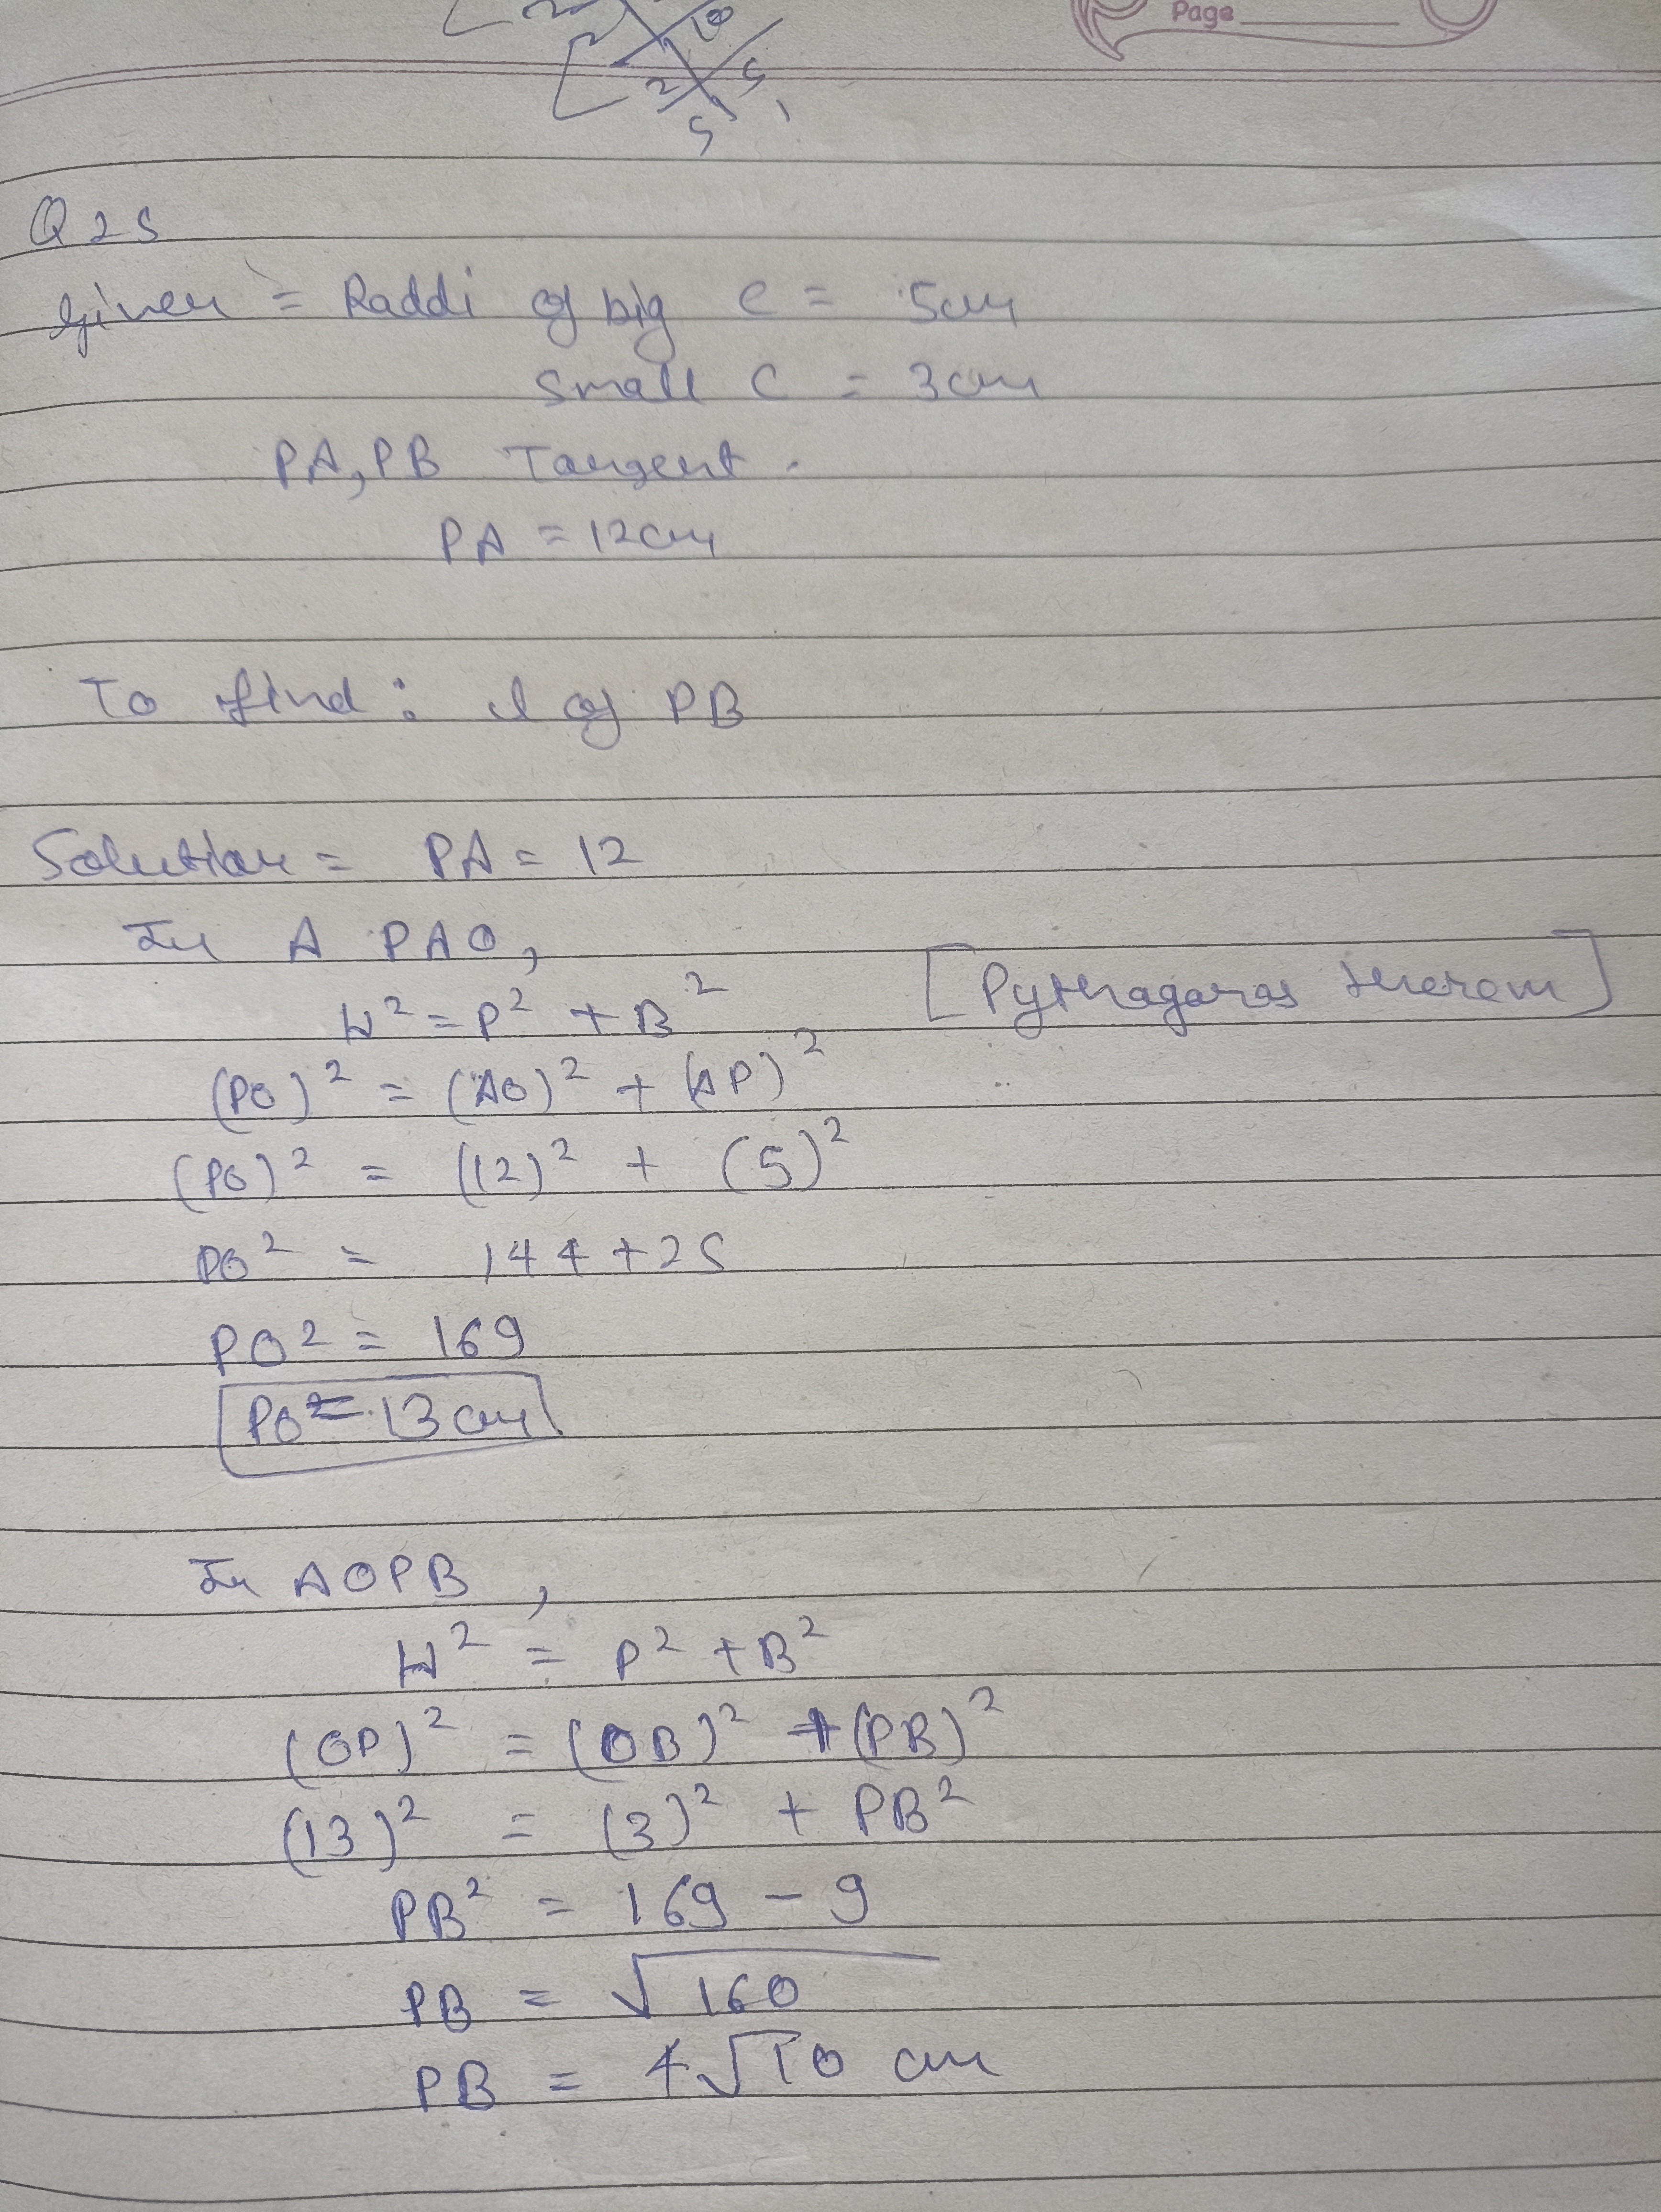 Page
10
2 5
5
Q 25
Given = Raddi of big C = 5cm
Small C = 3cm
PA, PB Tangent.
PA = 12cm
To find : l of PB
Solution = PA = 12
In Δ PAO,
H² = P² + B² [Pythagoras therem]
(PO)² = (AO)² + (AP)²
(PO)² = (12)² + (5)²
PO² = 144 + 25
PO² = 169
PO = 13 cm
In ΔOPB,
H² = P² + B²
(OP)² = (OB)² + (PB)²
(13)² = (3)² + PB²
PB² = 169 - 9
PB = √160
PB = 4√10 cm